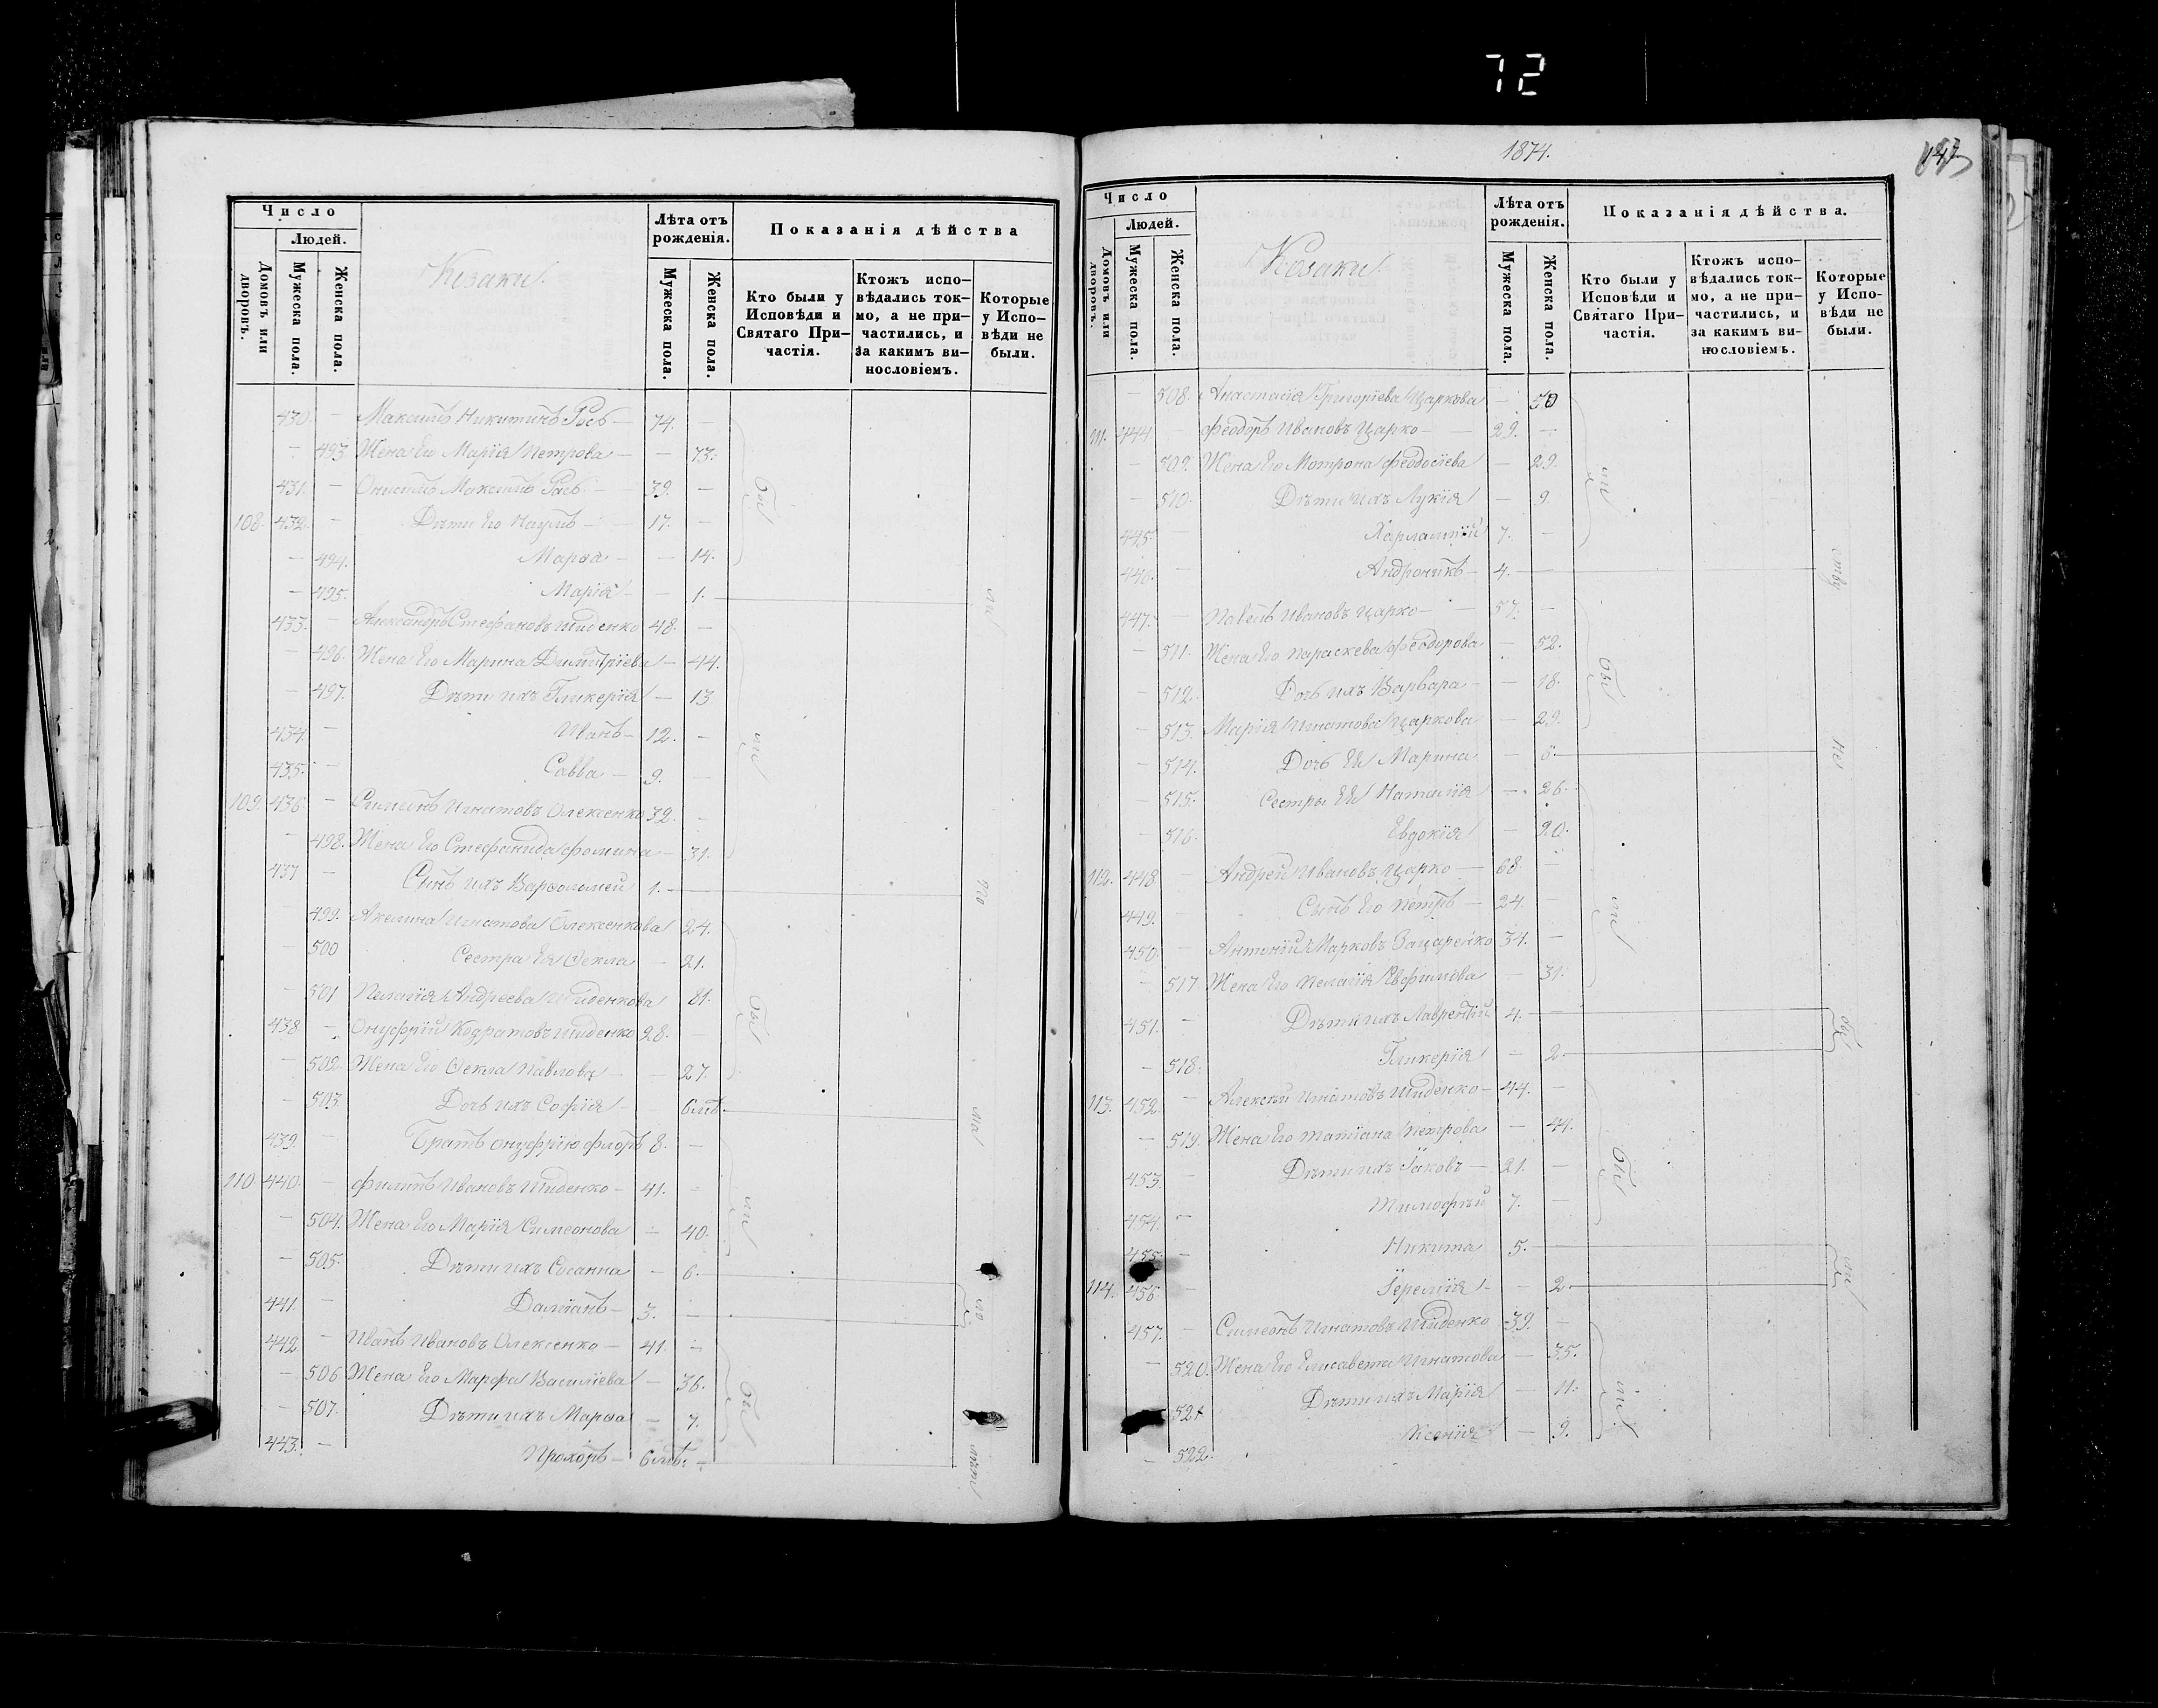 72
Число
Людей.
Домовъ или дворовъ.
Мужеска пола.
Женска пола.
Козаки
Лѣта отъ рожденія.
Мужеска пола.
Женска пола.
Показанія дѣйства
Кто были у Исповѣди и Святаго При-частія.
Ктожъ испо-вѣдались ток-мо, а не при-частились, и за какимъ ви-нословіемъ.
Которые у Испо-вѣди не были.
430. — Максимъ Никитинъ — 74. —
— 493 Жена Его Марія Петрова — — 73.
431. — Онисимъ Максимъ — 39. —
108. 432. — Дѣти Его Наумъ — 17. —
— 494. Марѳа — — 14.
— 495. Марія — — 1.
433. — Александръ Стефановъ Шиденко 48. —
— 496. Жена Его Марина Димитріева — 44.
— 497. Дѣти ихъ Гликерія — 13
434. — Иванъ — 12. —
435. — Савва — 9. —
109. 436 — Симеонъ Игнатовъ Олексенко 32. —
— 498. Жена Его Стефанида Фомина — 31.
437 — Сынъ ихъ Варѳоломей 1. —
499. Акелина Игнатова Олексенкова 24.
— 500 Сестра Ея Ѳекла — 21.
— 501 Пелагія Андреева Шиденкова 81.
438 — Онуфрій Кодратовъ Шиденко 28. —
— 502. Жена Его Ѳекла Павлова — — 27.
— 503 Дочь ихъ Софія — 6 мѣ.
439 — Братъ Онуфрію Флоръ 8. —
110 440. — Филипъ Ивановъ Шиденко — 41. —
— 504. Жена Его Марія Симеонова — 40.
— 505. Дѣти ихъ Сосанна — 6.
441. — Даміанъ — 3. —
442. — Иванъ Ивановъ Олексенко — 41. —
— 506 Жена Его Марфа Василіева — 36.
— 507. Дѣти ихъ Марѳа — 7.
443. — Прохоръ — 6 мѣ. —
1874.
Число
Людей.
Домовъ или дворовъ.
Мужеска пола.
Женска пола.
Козаки
Лѣта отъ рожденія.
Мужеска пола.
Женска пола.
Показанія дѣйства.
Кто были у Исповѣди и Святаго При-частія.
Ктожъ испо-вѣдались ток-мо, а не при-частились, и за какимъ ви-нословіемъ.
Которые у Испо-вѣди не были.
— 508. Анастасія Григоріева Царкова — 50
111. 444. — Феодоръ Ивановъ Царко — 29. —
— 509. Жена Его Мотрона Феодосіева — 29.
— 510. Дѣти ихъ Лукія — 9.
445. — Харлампій 7. —
446. — Андроникъ — 4. —
447. — Павелъ Ивановъ Царко — 57. —
— 511. Жена Его Параскева Феодорова — 52.
— 512. Дочь ихъ Варвара — — 18.
— 513. Марія Игнатова Царкова — 29.
— 514. Дочь Ея Марина — 5.
— 515. Сестры Ея Наталія — 26.
— 516. Евдокія — 20.
112. 448 — Андрей Ивановъ Царко — 68 —
449. — Сынъ Его Петръ — 24. —
450. — Антоній Марковъ Зацаренко 34. —
— 517 Жена Его Пелагія Евфимова — 31.
451. — Дѣти ихъ Лаврентій 4. —
— 518. Гликерія — 2.
113. 452. — Алексѣй Игнатовъ Шиденко — 44. —
— 519. Жена Его Татіана Петрова — 44.
453. — Дѣти ихъ Іаковъ — 21. —
454. — Тимофѣй 7. —
455. — Никита 5. —
114. 456. — Іеремія — — 2
457. — Симеонъ Игнатовъ Шиденко 39. —
— 520. Жена Его Елисавета Игнатова — 35.
521. Дѣти ихъ Марія — 11.
— 522. Ксенія — 9.